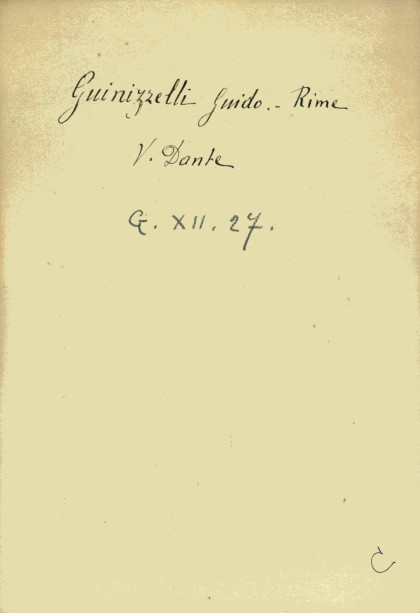 Guinizzelli Guido. - Rime
V. Dante
G. XII. 27.
C